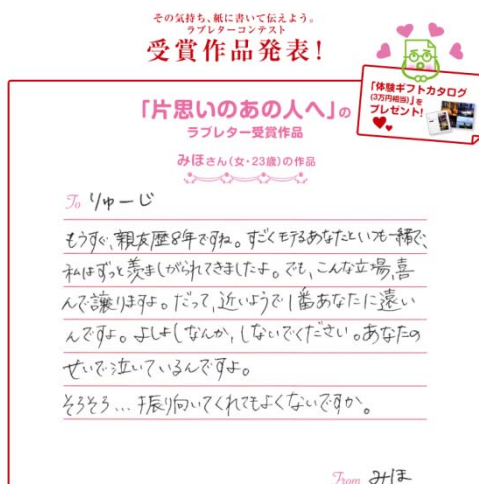 その気持ち、紙に書いて伝えよう。
ラブレターコンテスト
受賞作品発表!
「体験ギフトカタログ
(3万円相当)」を
プレゼント!
「片思いのあの人へ」の
ラブレター受賞作品
みほさん(女・23歳)の作品
To りゅーじ
もうすぐ、親友歴8年ですね。すごくモテるあなたといつも一緒で、
私はずっと羨ましがられてきましたよ。でも、こんな立場、喜
んで譲りますよ。だって、近いようで1番あなたに遠い
んですよ。よしよしなんか、しないでください。あなたの
せいで泣いているんですよ。
そろそろ...振り向いてくれてもよくないですか。
From みほ